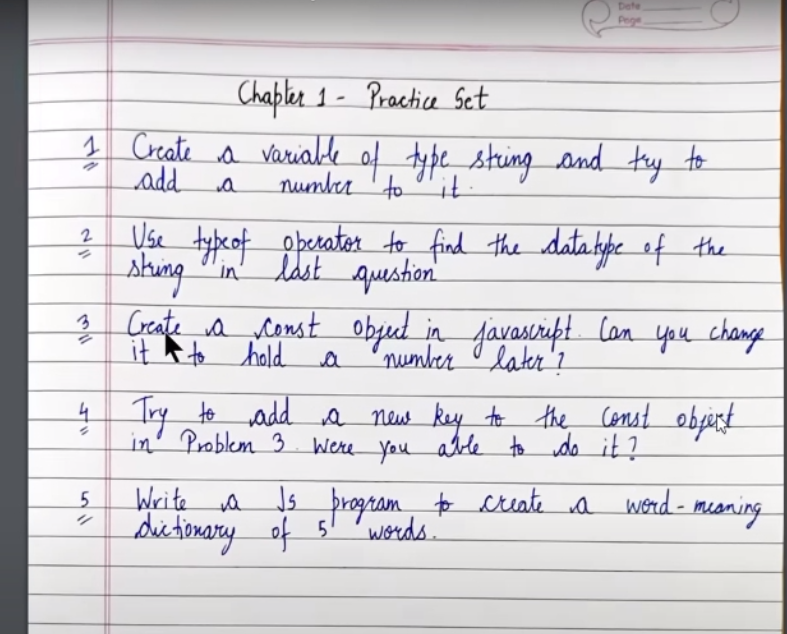 Date
Page
Chapter 1 - Practice Set
1 Create a variable of type string and try to
add a number to it.
2 Use typeof operator to find the datatype of the
string in last question
3 Create a const object in javascript. Can you change
it to hold a number later?
4 Try to add a new key to the const object
in Problem 3. Were you able to do it?
5 Write a Js program to create a word-meaning
dictionary of 5 words.